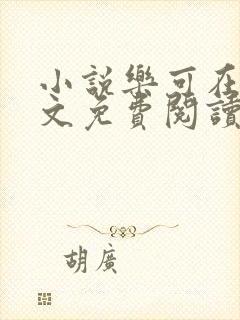 小說樂可在
文免費閱讀
胡廣